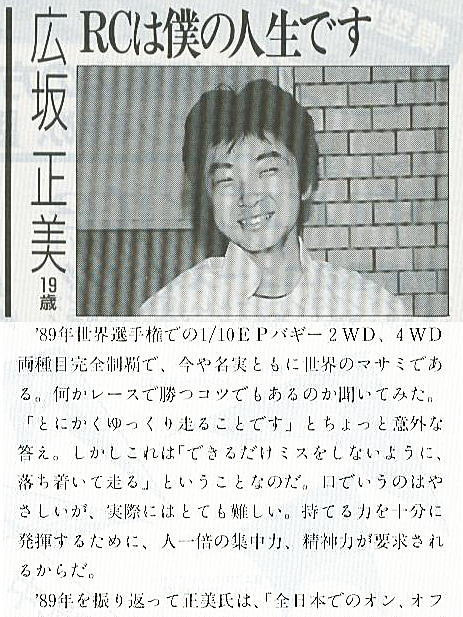 RCは僕の人生です
広坂正美
19歳
'89年世界選手権での1/10EPバギー2WD、4WD
両種目完全制覇で、今や名実ともに世界のマサミであ
る。何かレースで勝つコツでもあるのか聞いてみた。
「とにかくゆっくり走ることです」とちょっと意外な
答え。しかしこれは「できるだけミスをしないように、
落ち着いて走る」ということなのだ。口でいうのはや
さしいが、実際にはとても難しい。持てる力を十分に
発揮するために、人一倍の集中力、精神力が要求され
るからだ。
'89年を振り返って正美氏は、「全日本でのオン、オフ